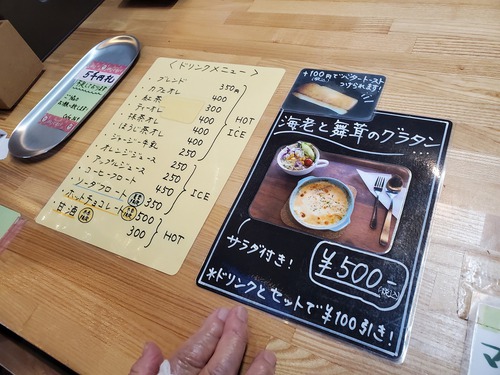 5千円札
〈ドリンクメニュー〉
・ブレンド 350円
・カフェオレ 400
・紅茶 300
・ティーオレ 400
・抹茶オレ 400
・ほうじ茶オレ 400
・ジョージ牛乳 250
・オレンジジュース 250
・アップルジュース 250
・コーヒーフロート 450
・ソーダフロート 350
・ホットチョコレート 500
・甘酒 300
HOT
ICE
ICE
HOT
+100円でバタートースト
つけられます!
海老と舞茸のグラタン
サラダ付き!
¥500-
(税込)
*ドリンクとセットで¥100引き!